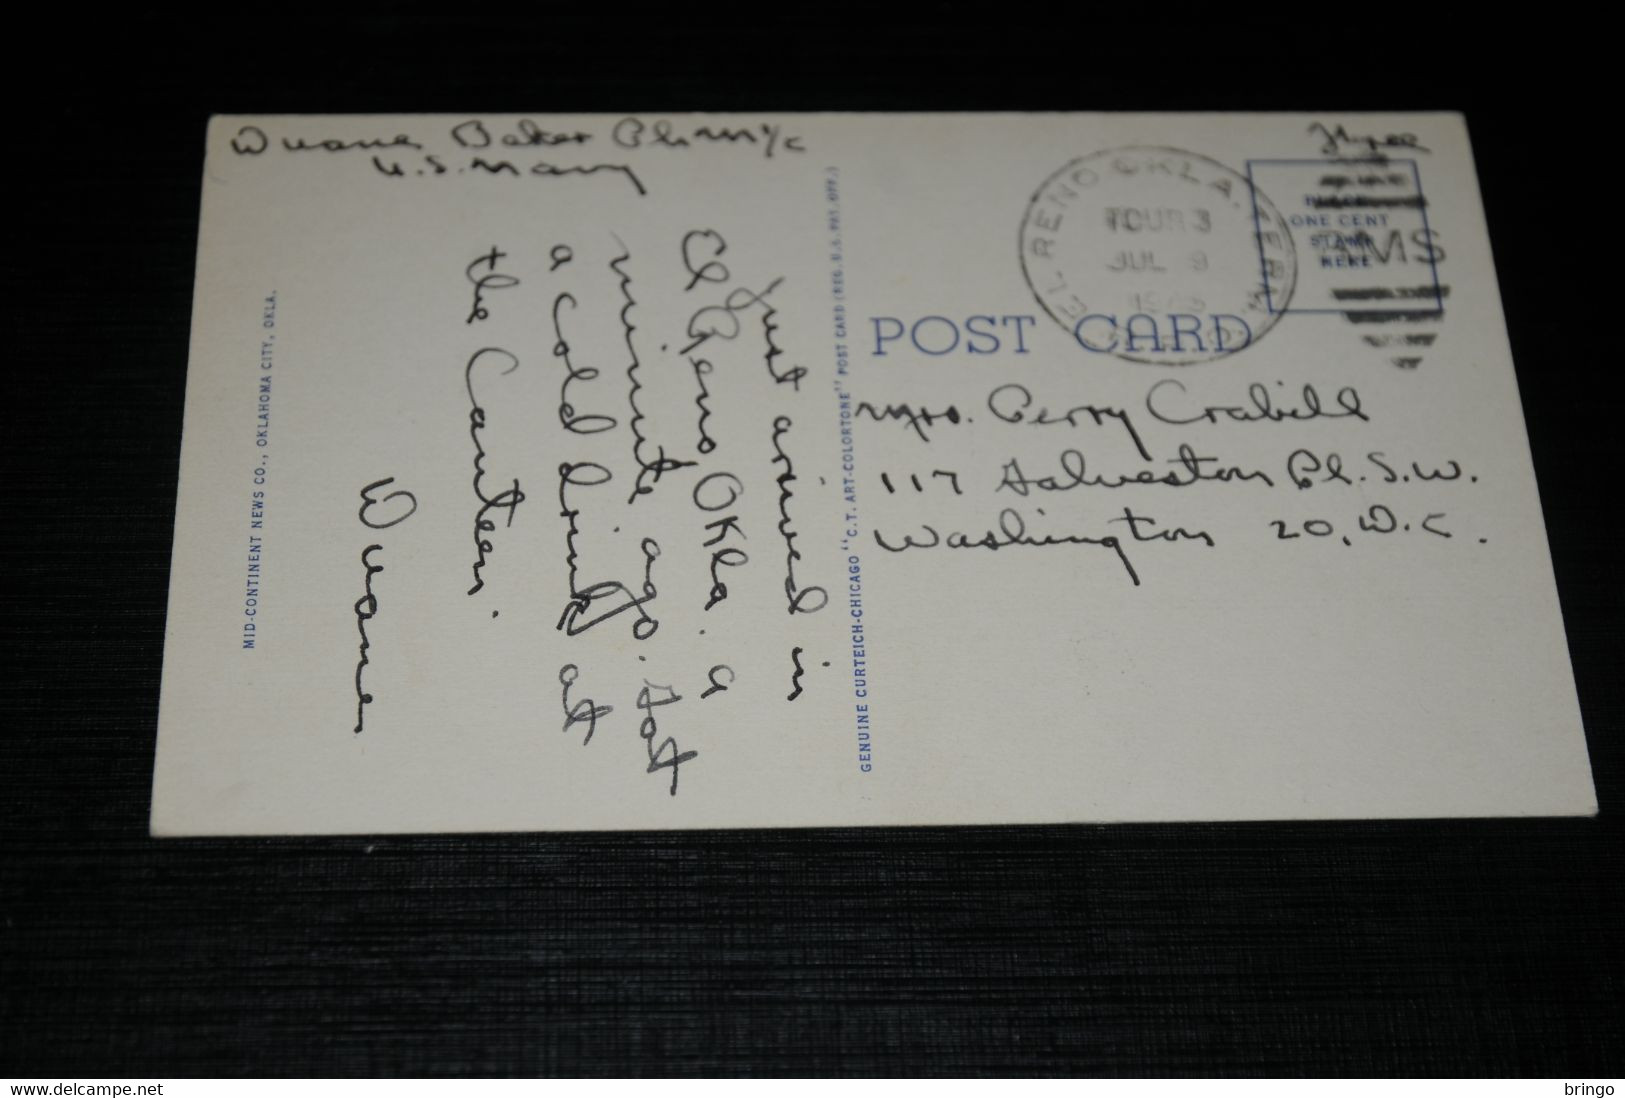 Duane Baker PhM 1/c
U.S. Navy
Just arived in
El Reno Okla. a
minute ago. Got
a cold drink at
the Canteen.
Duane
MID-CONTINENT NEWS CO., OKLAHOMA CITY, OKLA.
GENUINE CURTEICH-CHICAGO "C.T. ART-COLORTONE" POST CARD (REG. U.S. PAT. OFF.)
Free
EL RENO OKLA.
TOUR 3
JUL 9
RMS
PLACE
ONE CENT
STAMP
HERE
POST CARD
Mrs. Perry Crabill
117 Galveston Pl. S.W.
Washington 20, D.C.
© delcampe.net
bringo